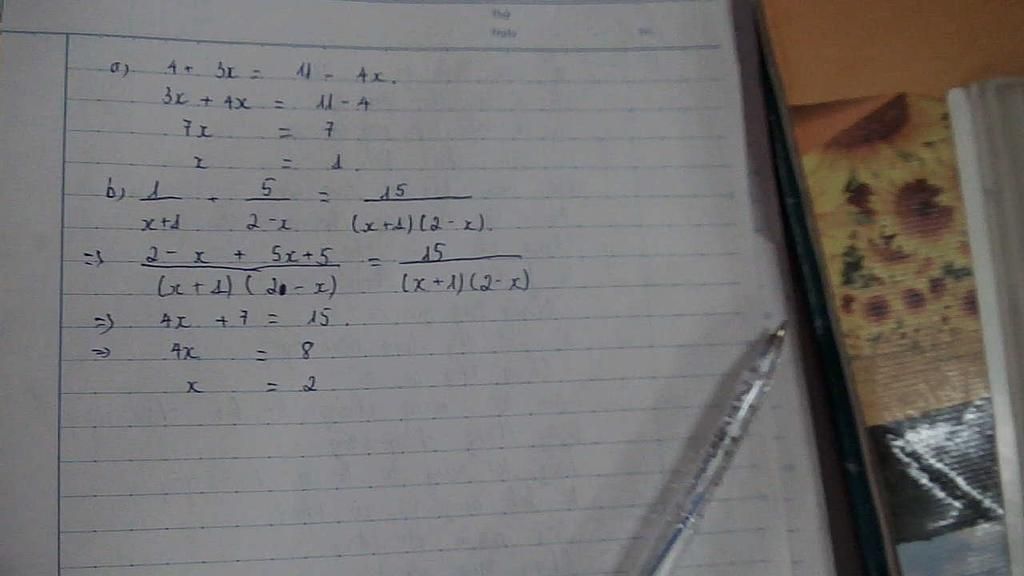 a) 4 + 3x = 11 - 4x.
3x + 4x = 11 - 4
7x = 7
x = 1.
b) 1/(x+1) + 5/(2-x) = 15/((x+1)(2-x)).
=> (2-x + 5x+5)/((x+1)(2-x)) = 15/((x+1)(2-x))
=> 4x + 7 = 15.
=> 4x = 8
x = 2